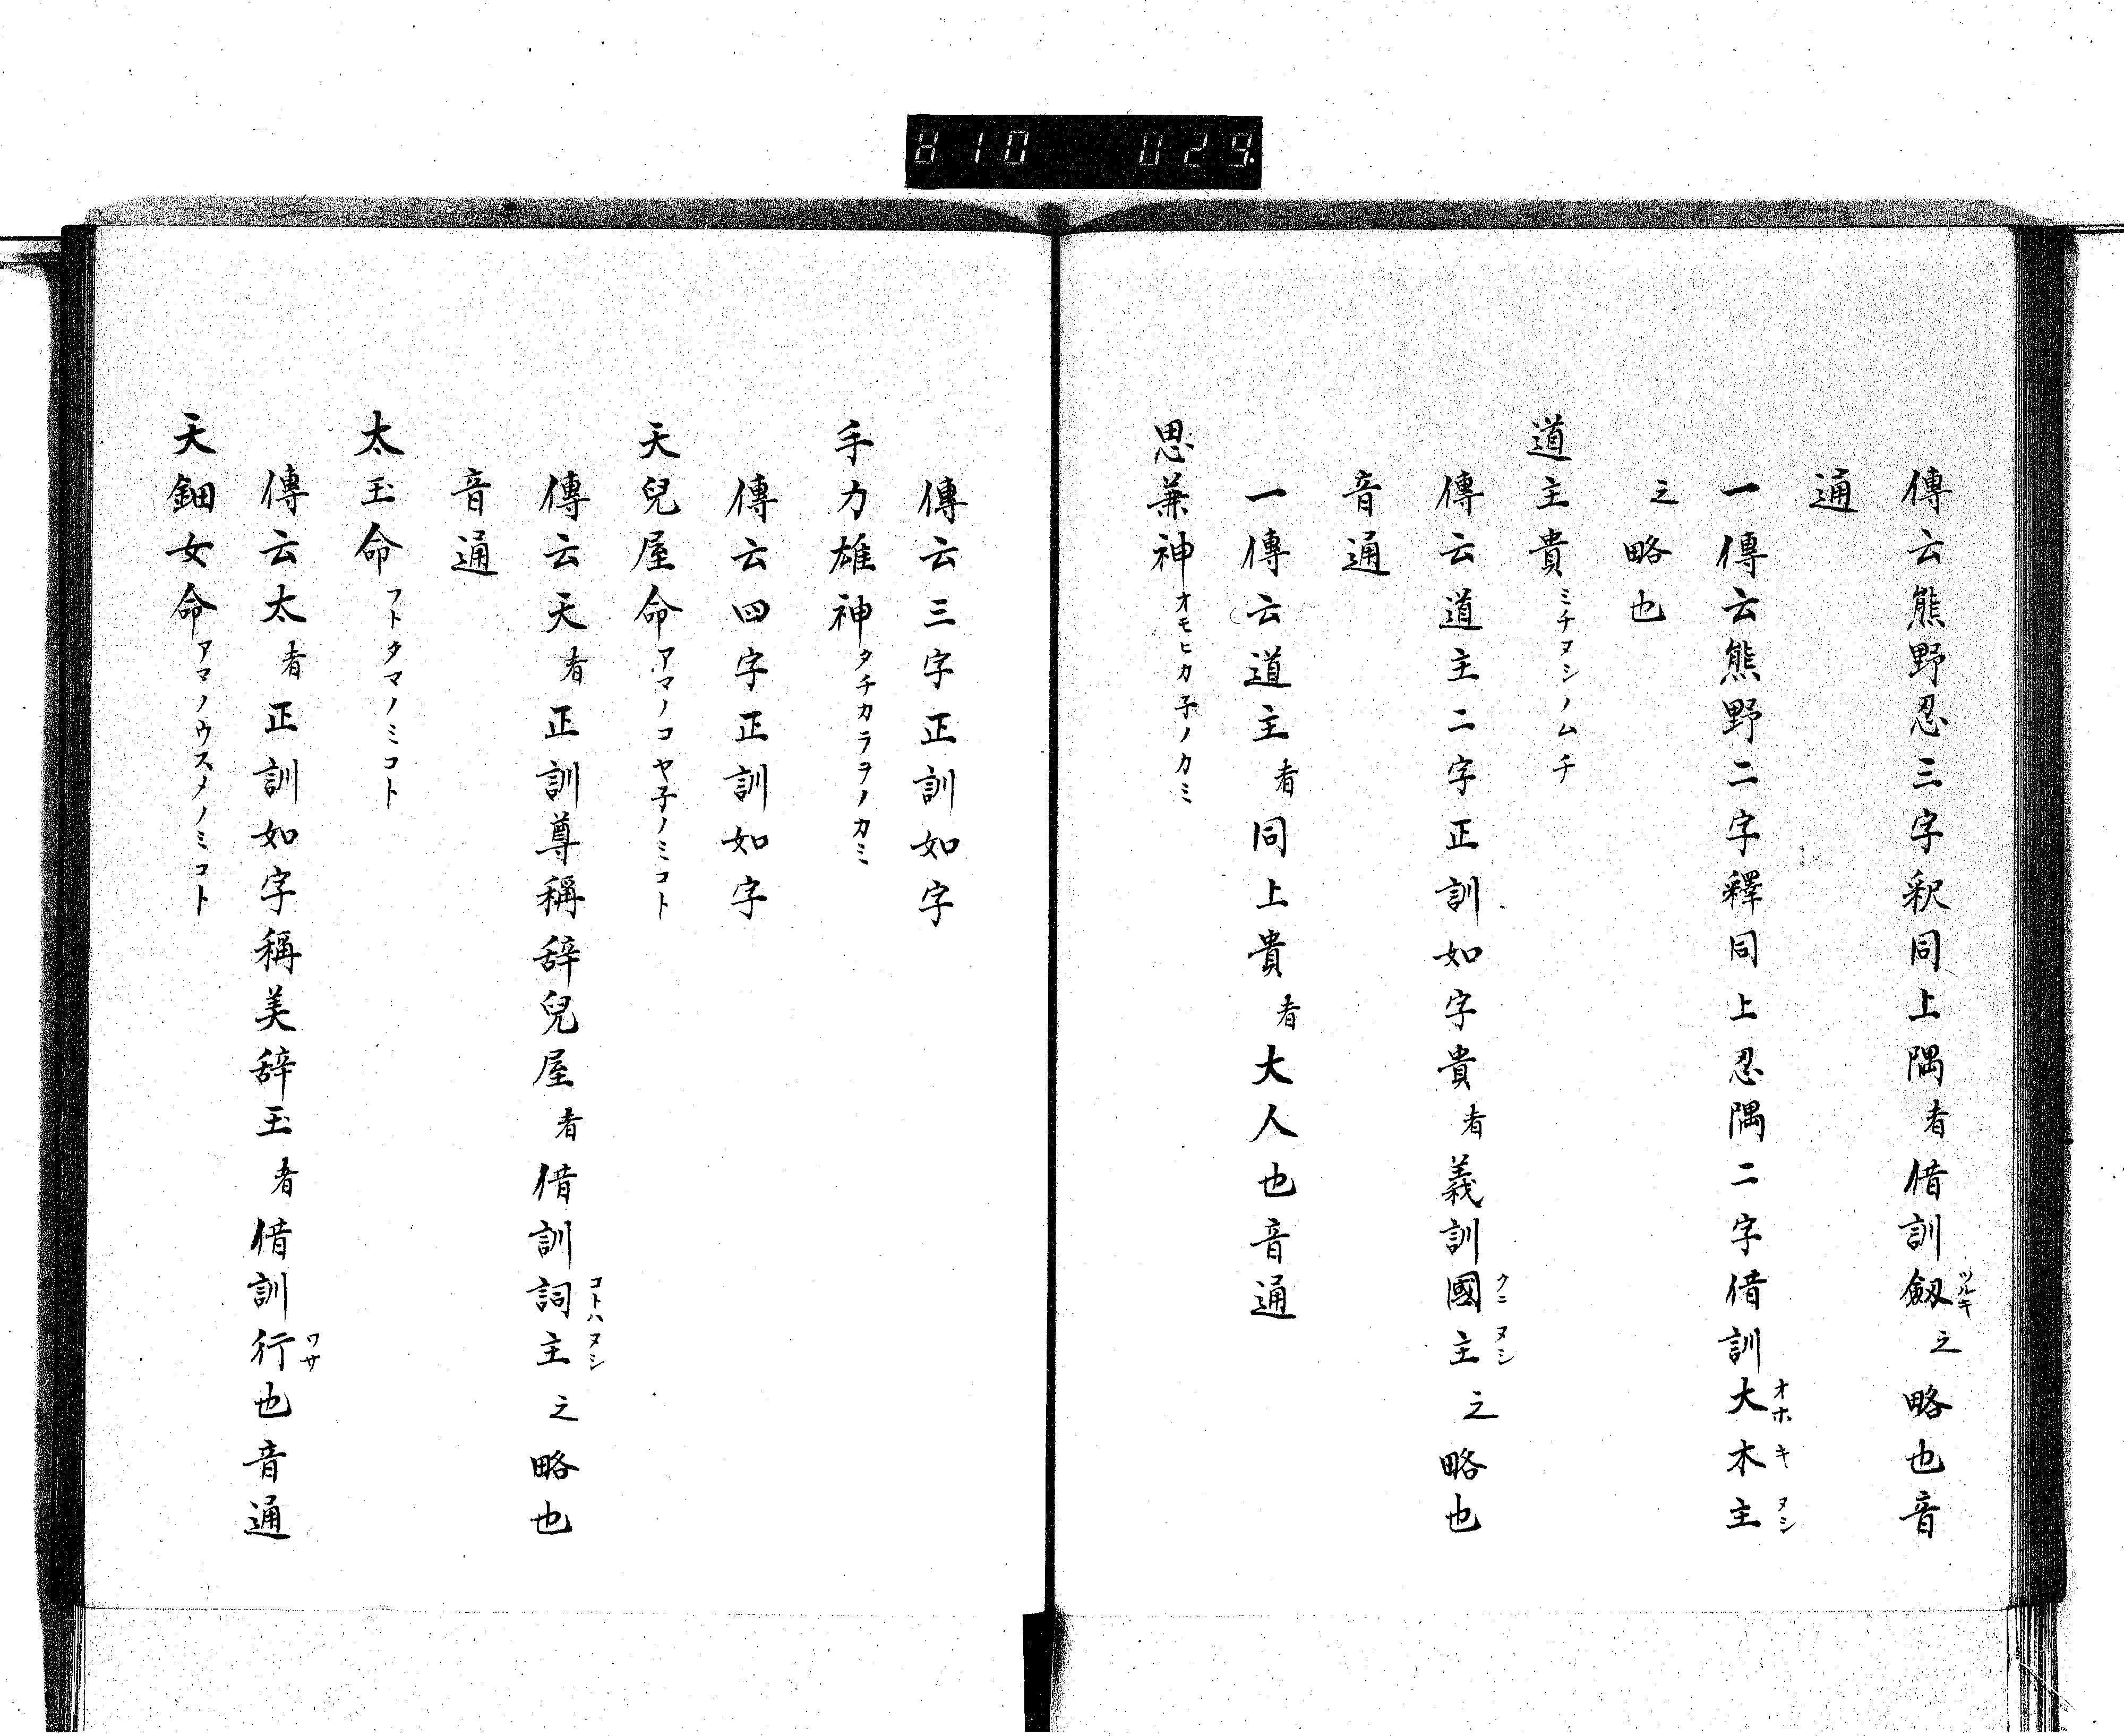 810 029.
傳云熊野忍三字釈同上隅者借訓劔ツルキ之略也音
通
一傳云熊野二字釋同上忍隅二字借訓大オホ木キ主ヌシ
之略也
道主貴ミチヌシノムチ
傳云道主二字正訓如字貴者義訓國クニ主ヌシ之略也
音通
一傳云道主者同上貴者大人也音通
思兼神オモヒカ子ノカミ
傳云三字正訓如字
手力雄神タチカラヲノカミ
傳云四字正訓如字
天兒屋命アマノコヤ子ノミコト
傳云天者正訓尊稱辞兒屋者借訓詞コトハ主ヌシ之略也
音通
太玉命フトタマノミコト
傳云太者正訓如字稱美辞玉者借訓行ワサ也音通
天鈿女命アマノウスメノミコト